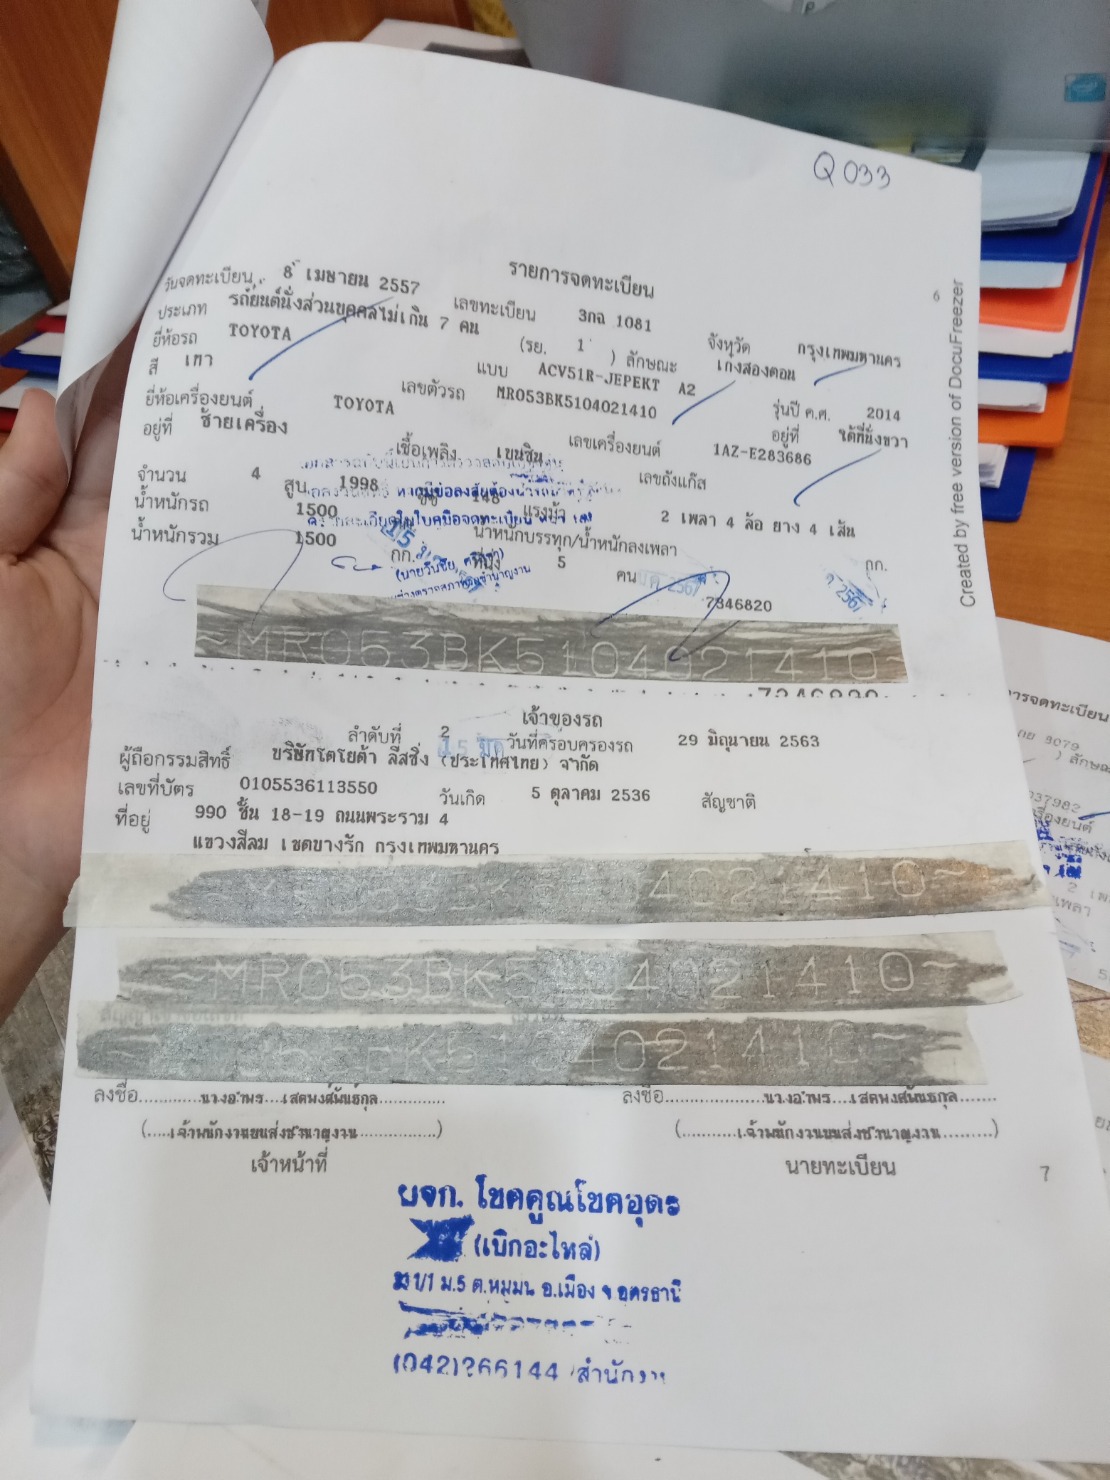 Q 033
รายการจดทะเบียน
6
วันจดทะเบียน 8 เมษายน 2557 เลขทะเบียน 3กฉ 1081 จังหวัด กรุงเทพมหานคร
ประเภท รถยนต์นั่งส่วนบุคคลไม่เกิน 7 คน (รย. 1 ) ลักษณะ เก๋งสองตอน
ยี่ห้อรถ TOYOTA แบบ ACV51R-JEPEKT A2 รุ่นปี ค.ศ. 2014
สี เทา เลขตัวรถ MR053BK5104021410 อยู่ที่ ใต้ที่นั่งขวา
ยี่ห้อเครื่องยนต์ TOYOTA เลขเครื่องยนต์ 1AZ-E283686
อยู่ที่ ซ้ายเครื่อง เชื้อเพลิง เบนซิน เลขถังแก๊ส
จำนวน 4 สูบ 1998 ซีซี 148 แรงม้า 2 เพลา 4 ล้อ ยาง 4 เส้น
น้ำหนักรถ 1500 น้ำหนักบรรทุก/น้ำหนักลงเพลา กก.
น้ำหนักรวม 1500 กก. ที่นั่ง 5 คน
7346820
~MR053BK5104021410~
Created by free version of DocuFreezer
เจ้าของรถ
ลำดับที่ 2 วันที่ครอบครองรถ 29 มิถุนายน 2563
ผู้ถือกรรมสิทธิ์ บริษัทโตโยต้า ลีสซิ่ง (ประเทศไทย) จำกัด
เลขที่บัตร 0105536113550 วันเกิด 5 ตุลาคม 2536 สัญชาติ
ที่อยู่ 990 ชั้น 18-19 ถนนพระราม 4
แขวงสีลม เขตบางรัก กรุงเทพมหานคร
04021410~
~MR053BK5104021410~
K5104021410~
ลงชื่อ นางอำพร เสดพงศ์พันธกุล ลงชื่อ นางอำพร เสดพงศ์พันธกุล
(เจ้าพนักงานขนส่งชำนาญงาน) (เจ้าพนักงานขนส่งชำนาญงาน)
เจ้าหน้าที่ นายทะเบียน
7
ผจก. โชคคูณโชคอุดร
(เบิกอะไหล่)
1/1 ม.5 ต.หมูม่น อ.เมือง จ.อุดรธานี
(042)266144 สำนักงาน